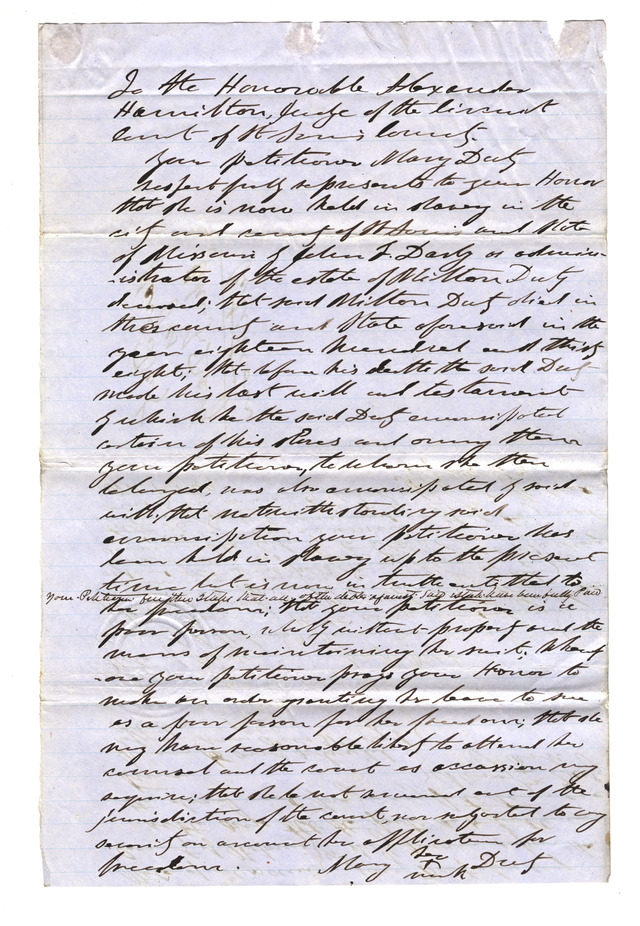 To the Honorable Alexander
Hamilton, Judge of the Circuit
Court of St Louis County
Your petitioner Mary Duty
respectfully represents to your Honor
that she is now held in slavery in the
city and county of St Louis and State
of Missouri by John F. Darby as admin-
-istrator of the estate of Milton Duty
deceased; that said Milton Duty died in
the county and State aforesaid in the
year eighteen hundred and thirty
eight; that before his death the said Duty
made his last will and testament
by which he the said Duty emancipated
certain of his slaves and among them
your petitioner, to whom she then
belonged, was also emancipated by said
will, that notwithstanding said
emancipation your petitioner has
been held in slavery up to the present
time but is now in truth entitled to
your Petitioner further states that all of the debts against said estate have been fully Paid
her freedom; that your petitioner is a
poor person, wholy without property and the
means of maintaining her suit; Where
-ore your petitioner prays your Honor to
make an order granting her leave to sue
as a poor person for her freedom; that she
may have reasonable liberty to attend her
counsel and the court as occassion may
require; that she be not removed out of the
jurisdiction of the court nor subjected to any
severity on account her application for
freedom.
Mary her Duty
X
mark